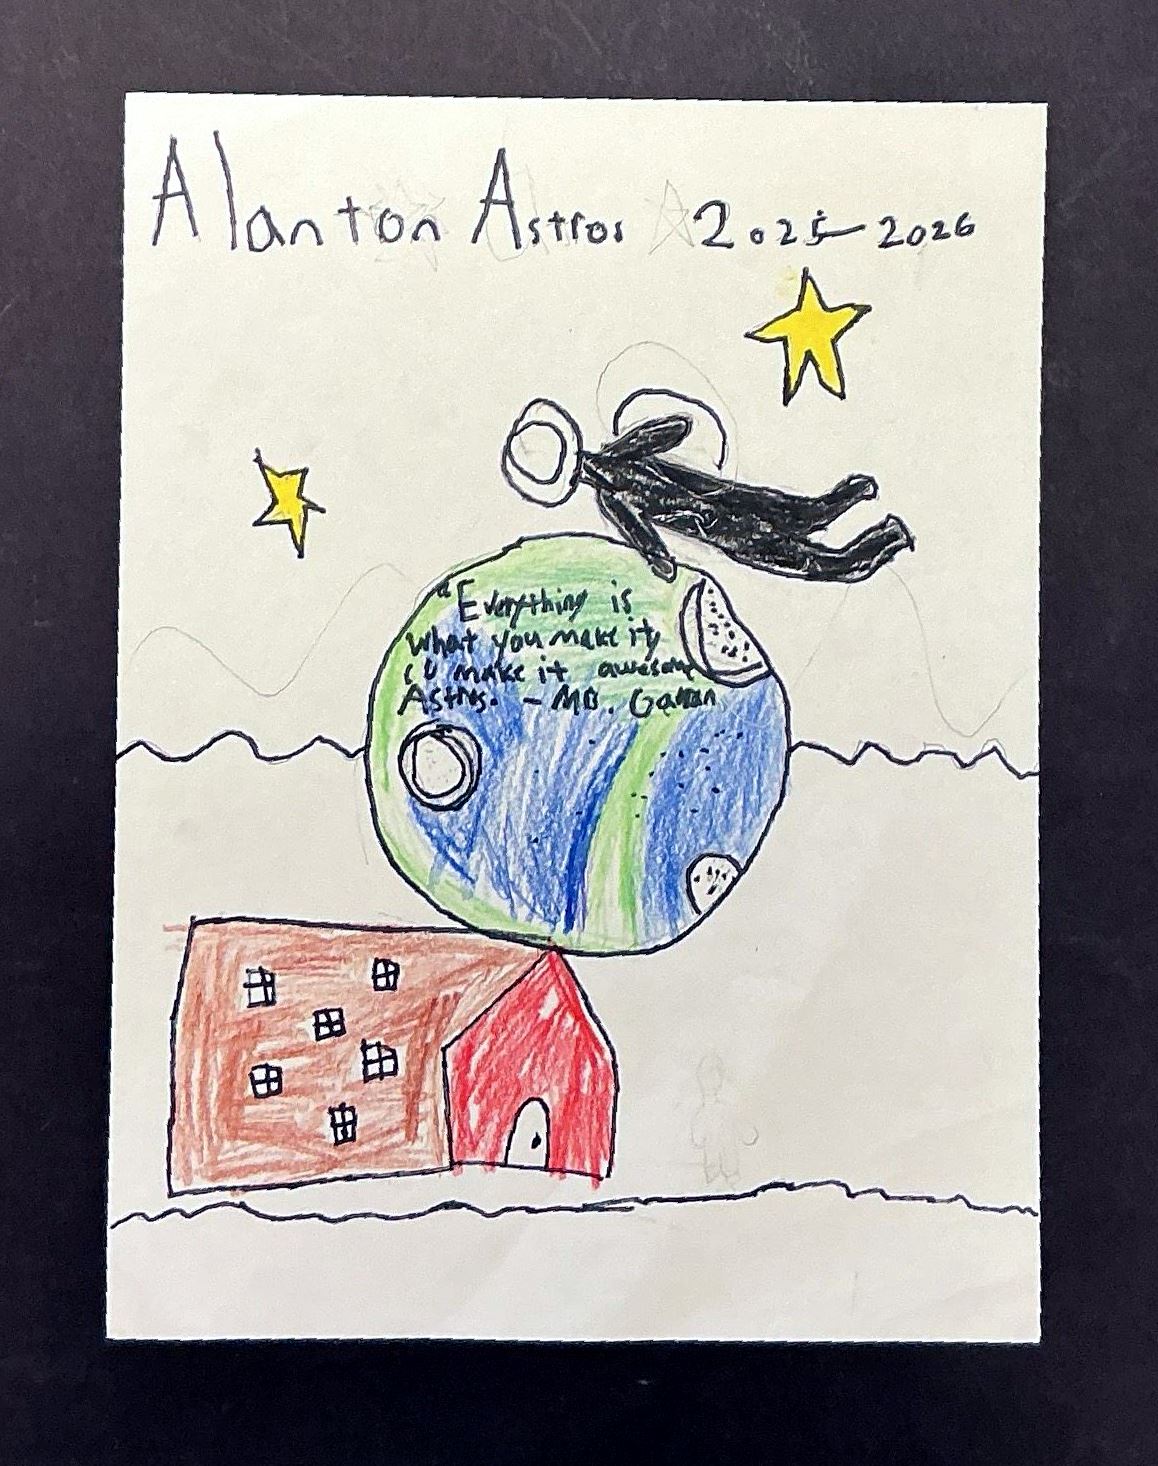 Alanton Astros 2025-2026
"Everything is
what you make it,
so make it awesome
Astros. - MR.